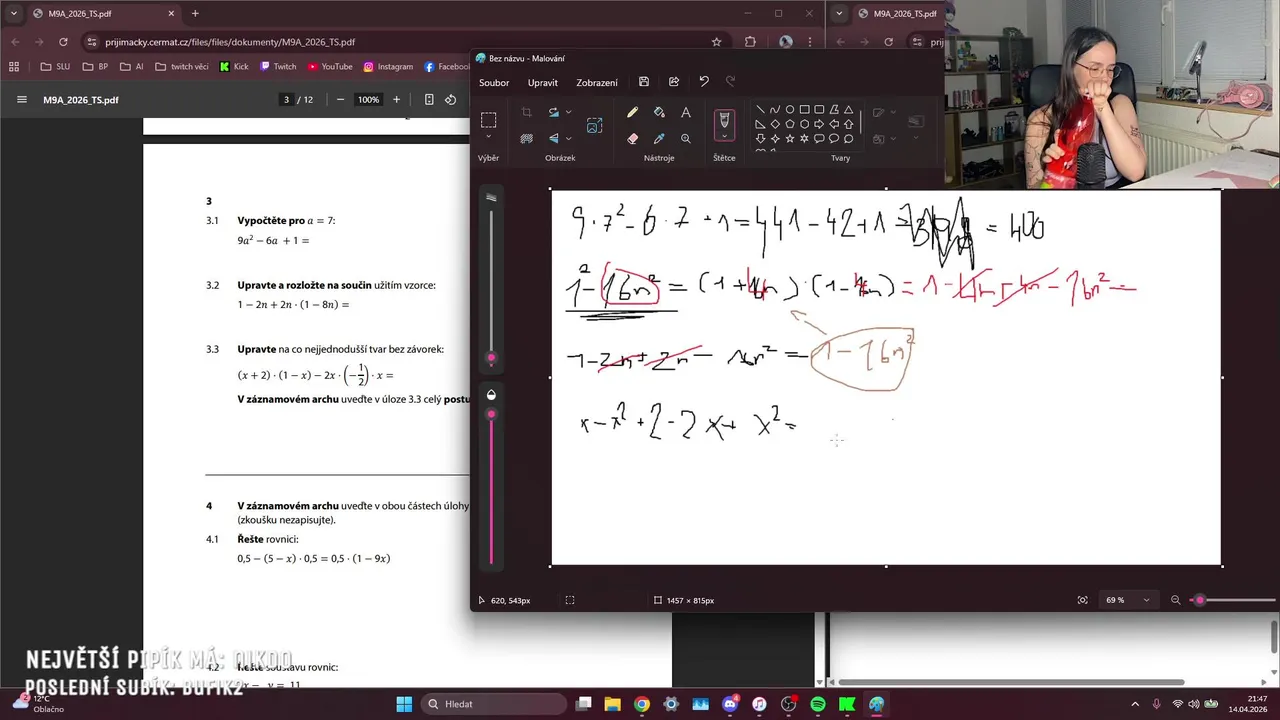 M9A_2026_TS.pdf
M9A_2026_TS.pdf
prijimacky.cermat.cz/files/files/dokumenty/M9A_2026_TS.pdf
SLU
BP
AI
twitch věci
Kick
Twitch
YouTube
Instagram
Facebook
M9A_2026_TS.pdf
3 / 12
100%
Bez názvu - Malování
Soubor
Upravit
Zobrazení
Výběr
Obrázek
Nástroje
Štětce
Tvary
3
3.1 Vypočtěte pro a = 7:
9a² − 6a + 1 =
3.2 Upravte a rozložte na součin užitím vzorce:
1 − 2n + 2n · (1 − 8n) =
3.3 Upravte na co nejjednodušší tvar bez závorek:
(x + 2) · (1 − x) − 2x · (−1/2) · x =
V záznamovém archu uveďte v úloze 3.3 celý
4 V záznamovém archu uveďte v obou částech úlohy
(zkoušku nezapisujte).
4.1 Řešte rovnici:
0,5 − (5 − x) · 0,5 = 0,5 · (1 − 9x)
4.2 Řešte soustavu rovnic:
9·7²-6·7+1=441-42+1= = 400
1²-16n²=(1+4n)·(1-4n)=1-4n+4n-16n²=
1-2n+2n-16n²=1-16n²
x-x²+2-2x+x²=
620, 543px
1457 × 815px
69 %
NEJVĚTŠÍ PIPÍK MÁ: NIKDO
POSLEDNÍ SUBÍK: BUFIK2
12°C
Oblačno
Hledat
21:47
14.04.2026